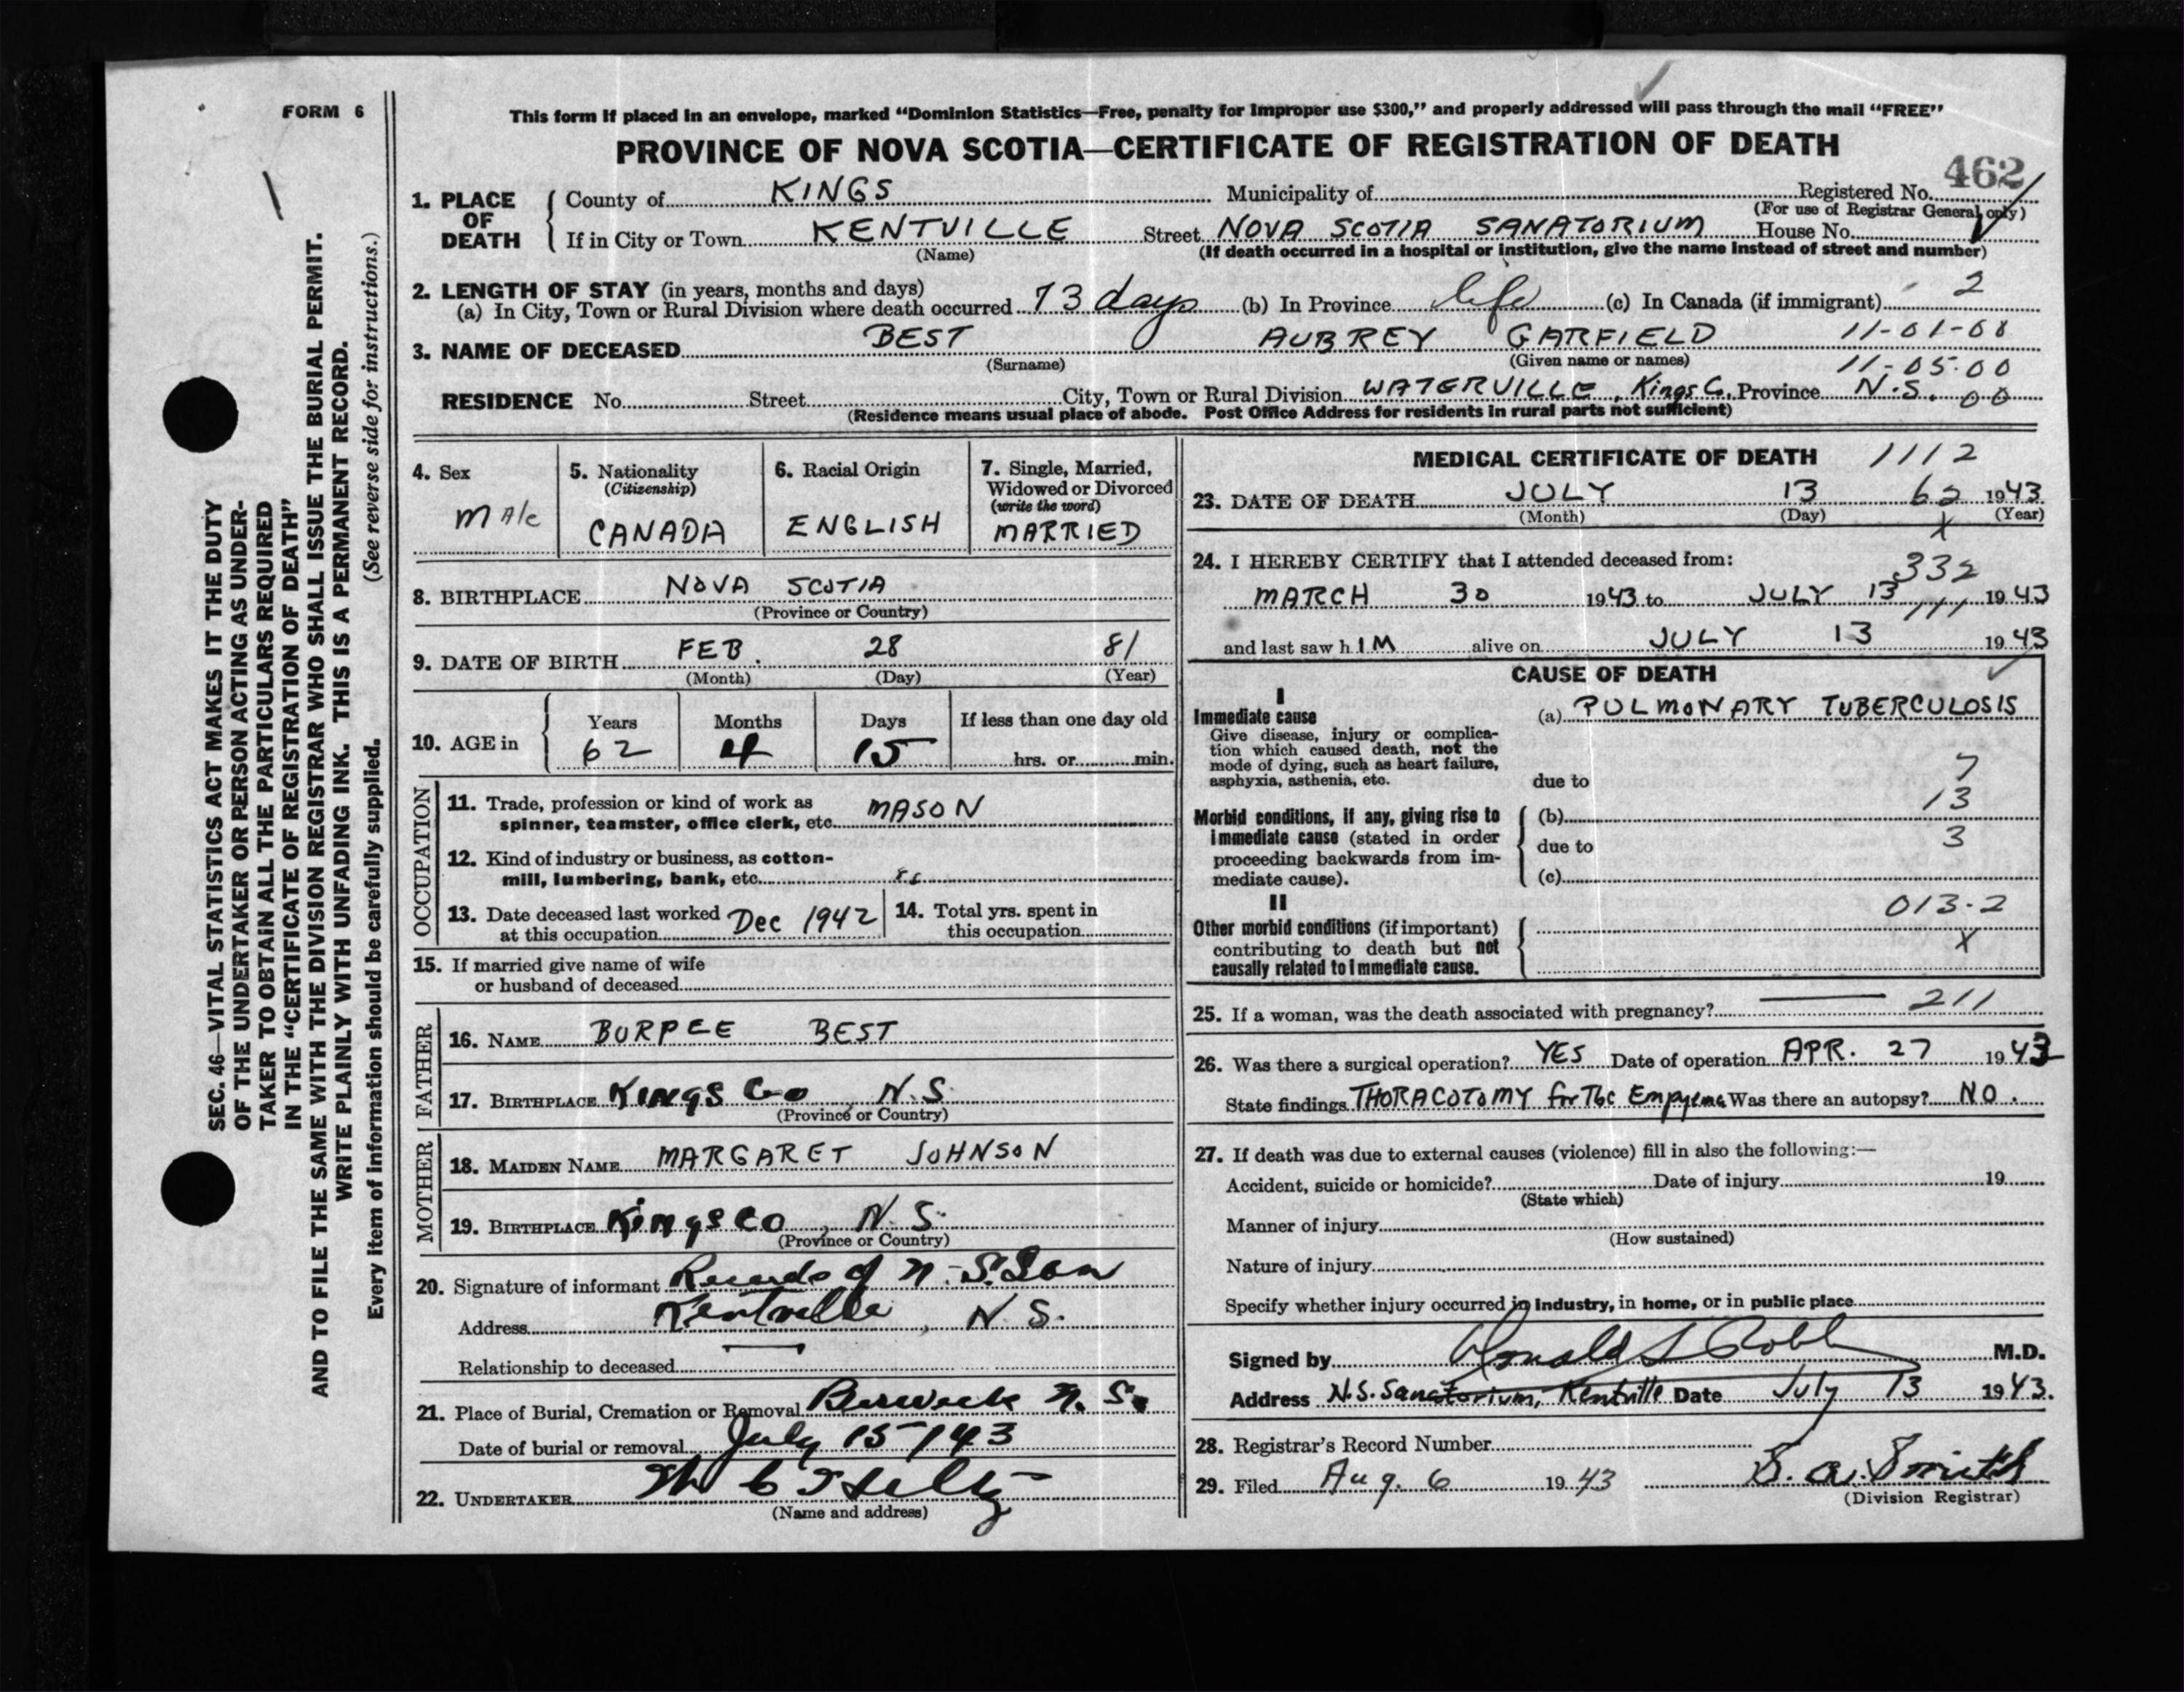 FORM 6
This form if placed in an envelope, marked “Dominion Statistics—Free, penalty for improper use $300,” and properly addressed will pass through the mail “FREE”
PROVINCE OF NOVA SCOTIA—CERTIFICATE OF REGISTRATION OF DEATH
462
1. PLACE OF DEATH County of KINGS Municipality of Registered No.
(For use of Registrar General only)
If in City or Town KENTVILLE Street NOVA SCOTIA SANATORIUM House No.
(Name) (If death occurred in a hospital or institution, give the name instead of street and number)
2. LENGTH OF STAY (in years, months and days)
(a) In City, Town or Rural Division where death occurred 73 days (b) In Province life (c) In Canada (if immigrant) 2
3. NAME OF DECEASED BEST AUBREY GARFIELD 11-01-08
(Surname) (Given name or names) 11-05-00
RESIDENCE No. Street City, Town or Rural Division WATERVILLE, Kings C. Province N.S. 00
(Residence means usual place of abode. Post Office Address for residents in rural parts not sufficient)
4. Sex MAle
5. Nationality (Citizenship) CANADA
6. Racial Origin ENGLISH
7. Single, Married, Widowed or Divorced (write the word) MARRIED
8. BIRTHPLACE NOVA SCOTIA
(Province or Country)
9. DATE OF BIRTH FEB. 28 81
(Month) (Day) (Year)
10. AGE in Years Months Days If less than one day old
62 4 15 hrs. or min.
OCCUPATION
11. Trade, profession or kind of work as
spinner, teamster, office clerk, etc. MASON
12. Kind of industry or business, as cotton-
mill, lumbering, bank, etc.
13. Date deceased last worked
at this occupation Dec 1942
14. Total yrs. spent in
this occupation
15. If married give name of wife
or husband of deceased
FATHER
16. NAME BURPEE BEST
17. BIRTHPLACE Kings Co, N.S.
(Province or Country)
MOTHER
18. MAIDEN NAME MARGARET JOHNSON
19. BIRTHPLACE Kings Co, N.S.
(Province or Country)
20. Signature of informant Records of N.S. San
Address Kentville, N.S.
Relationship to deceased —
21. Place of Burial, Cremation or Removal Berwick N.S.
Date of burial or removal July 15/43
22. UNDERTAKER
(Name and address)
MEDICAL CERTIFICATE OF DEATH 1112
23. DATE OF DEATH JULY 13 62 1943
(Month) (Day) (Year)
X
24. I HEREBY CERTIFY that I attended deceased from:
332
MARCH 30 1943 to JULY 13 1943
111
and last saw h IM alive on JULY 13 1943
CAUSE OF DEATH
I
Immediate cause
Give disease, injury or complica-
tion which caused death, not the
mode of dying, such as heart failure,
asphyxia, asthenia, etc.
(a) PULMONARY TUBERCULOSIS
due to 7
Morbid conditions, if any, giving rise to
immediate cause (stated in order
proceeding backwards from im-
mediate cause).
(b) 13
due to 3
(c)
II
Other morbid conditions (if important)
contributing to death but not
causally related to immediate cause.
013-2
X
25. If a woman, was the death associated with pregnancy? — 211
26. Was there a surgical operation? YES Date of operation APR. 27 1943
State findings THORACOTOMY for Tbc Empyema Was there an autopsy? NO.
27. If death was due to external causes (violence) fill in also the following:—
Accident, suicide or homicide? Date of injury 19
(State which)
Manner of injury
(How sustained)
Nature of injury
Specify whether injury occurred in industry, in home, or in public place
Signed by Donald S Robb M.D.
Address N.S. Sanatorium, Kentville Date July 13 1943.
28. Registrar's Record Number
29. Filed Aug. 6 1943 S. A. Smith
(Division Registrar)
SEC. 46—VITAL STATISTICS ACT MAKES IT THE DUTY
OF THE UNDERTAKER OR PERSON ACTING AS UNDER-
TAKER TO OBTAIN ALL THE PARTICULARS REQUIRED
IN THE “CERTIFICATE OF REGISTRATION OF DEATH”
AND TO FILE THE SAME WITH THE DIVISION REGISTRAR WHO SHALL ISSUE THE BURIAL PERMIT.
WRITE PLAINLY WITH UNFADING INK. THIS IS A PERMANENT RECORD.
Every item of information should be carefully supplied. (See reverse side for instructions.)